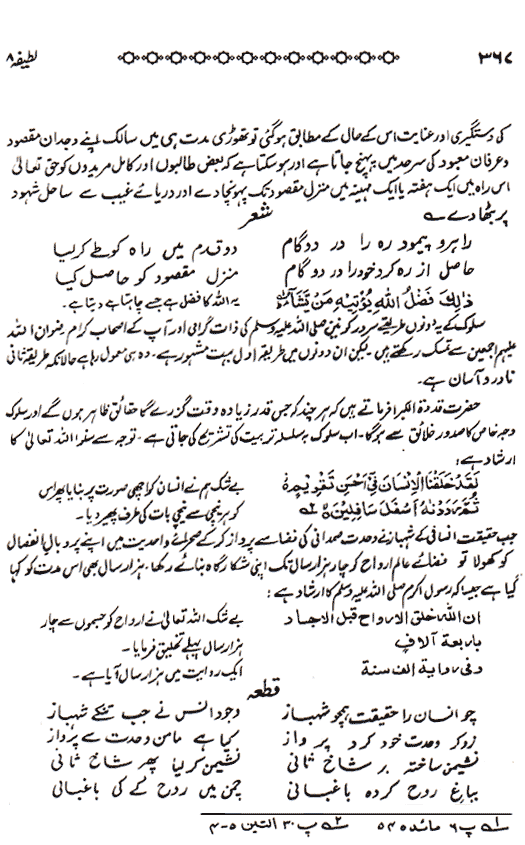 ۳۶۷
لطیفہ ۸
کی دستگیری اور عنایت اس کے حال کے مطابق ہوگئی تو تھوڑی مدت ہی میں سالک اپنے وجدان مقصود
و عرفان معبود کی سرحد میں پہنچ جاتا ہے اور ہوسکتا ہے کہ بعض طالبوں اور کامل مریدوں کو حق تعالیٰ
اس راہ میں ایک ہفتہ یا ایک مہینہ میں منزل مقصود تک پہونچا دے اور دریائے غیب سے ساحل شہود
پر بٹھا دے
شعر
راہرو پیمود رہ را در دو گام
دو قدم میں راہ کو طے کر لیا
حاصل از رہ کرد خود را در دو گام
منزل مقصود کو حاصل کیا
ذٰلِكَ فَضْلُ اللهِ يُؤْتِيهِ مَنْ يَّشَآءُ
یہ اللہ کا فضل ہے جسے چاہتا ہے دیتا ہے۔
سلوک کے یہ دونوں طریقے سرور کونین صلی اللہ علیہ وسلم کی ذات گرامی اور آپ کے اصحاب کرام رضوان اللہ
علیہم اجمعین سے تمسک رکھتے ہیں لیکن ان دونوں میں طریقہ اول بہت مشہور ہے۔ وہ ہی معمول رہا ہے حالانکہ طریقہ ثانی
نادر و آسان ہے۔
حضرت قدوۃ الکبرا فرماتے ہیں کہ ہر چند کہ جس قدر زیادہ وقت گزرے گا حقائق ظاہر ہوں گے اور سلوک
وجہ خاص کا صدور خلائق سے ہوگا۔ اب سلوک بہ سلسلہ تربیت کی تشریح کی جاتی ہے۔ توجہ سے سنو! اللہ تعالیٰ کا
ارشاد ہے:
لَقَدْ خَلَقْنَا الْاِنْسَانَ فِيْ اَحْسَنِ تَقْوِيْمٍ
بے شک ہم نے انسان کو اچھی صورت پر بنایا پھر اس
ثُمَّ رَدَدْنٰهُ اَسْفَلَ سَافِلِيْنَ ۲
کو ہر نیچی سے نیچی بات کی طرف پھیر دیا۔
جب حقیقت انسانی کے شہباز نے وحدت صمدانی کی فضا سے پرواز کر کے صحرائے واحدیت میں اپنے پر و بال انفصال
کو کھولا تو فضائے عالم ارواح کو چار ہزار سال تک اپنی شکار گاہ بنائے رکھا۔ ہزار سال بھی اس مدت کو کہا
گیا ہے جیسا کہ رسول اکرم صلی اللہ علیہ وسلم کا ارشاد ہے:
ان اللہ خلق الارواح قبل الاجساد
بے شک اللہ تعالیٰ نے ارواح کو جسموں سے چار
باربعة آلاف
ہزار سال پہلے تخلیق فرمایا۔
وفی روایة الف سنة
ایک روایت میں ہزار سال آیا ہے۔
قطعہ
چو انسان را حقیقت ہمچو شہباز
وجود انس نے جب تنکے شہباز
زوکر وحدت خود کرد پرواز
کیا ہے مامن وحدت سے پرواز
نشیمن ساختہ بر شاخ ثانی
نشیمن کر لیا پھر شاخ ثانی
بباغ روح کردہ باغبانی
چمن میں روح کے کی باغبانی
۱ پ ۶ مائدہ ۵۴
۲ پ ۳۰ التین ۵-۴